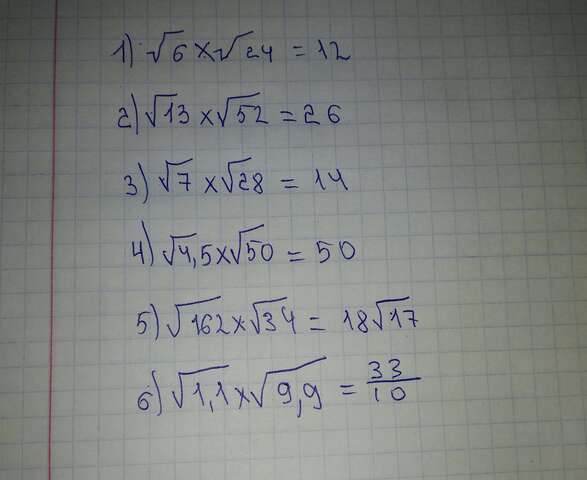 1) √6 x √24 = 12
2) √13 x √52 = 26
3) √7 x √28 = 14
4) √4,5 x √50 = 50
5) √162 x √34 = 18√17
6) √1,1 x √9,9 = 33/10